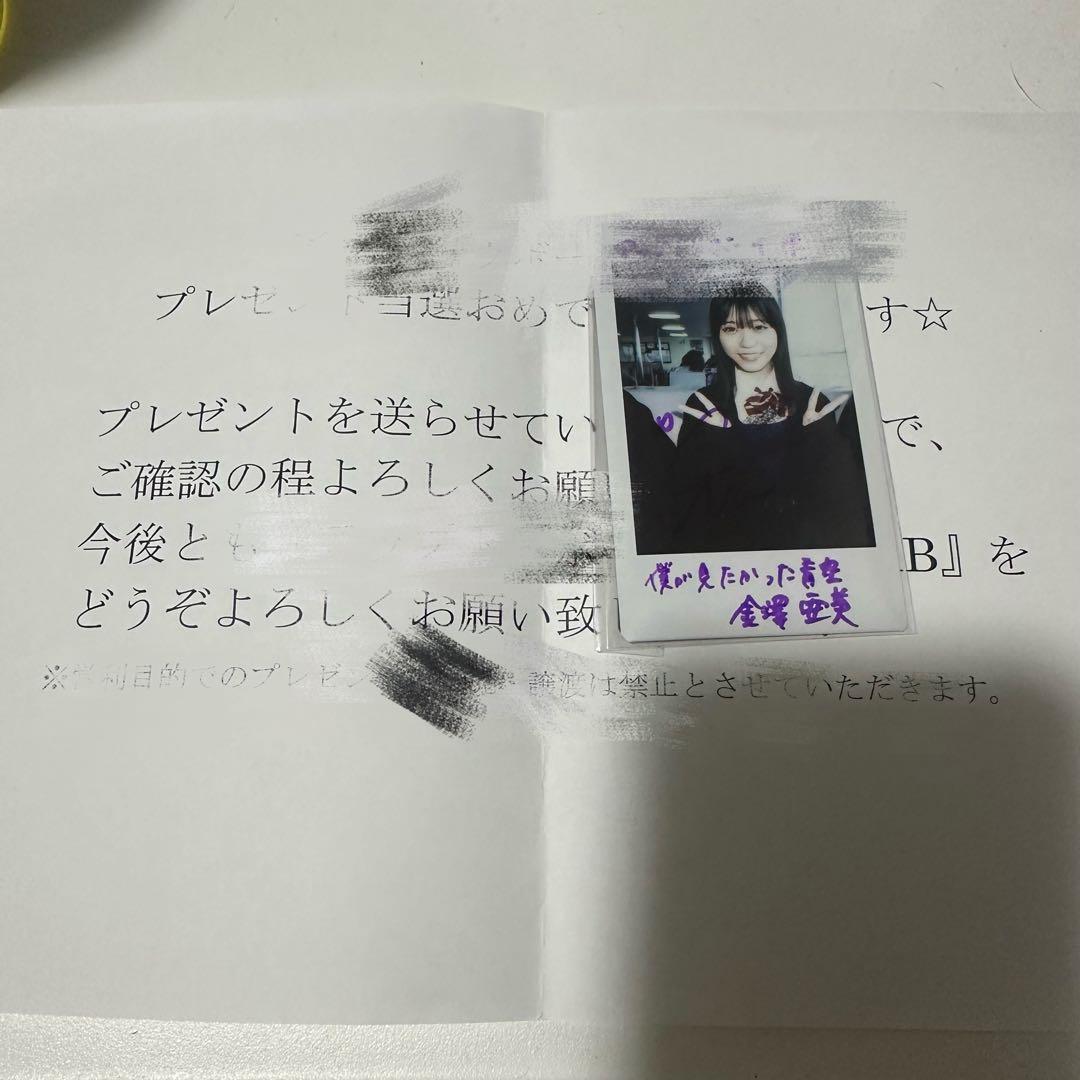 プレゼント当選おめで す☆
プレゼントを送らせてい で、
ご確認の程よろしくお願
今後とも B』を
どうぞよろしくお願い致
※営利目的でのプレゼン 譲渡は禁止とさせていただきます。
僕が見たかった青空
金澤亜美